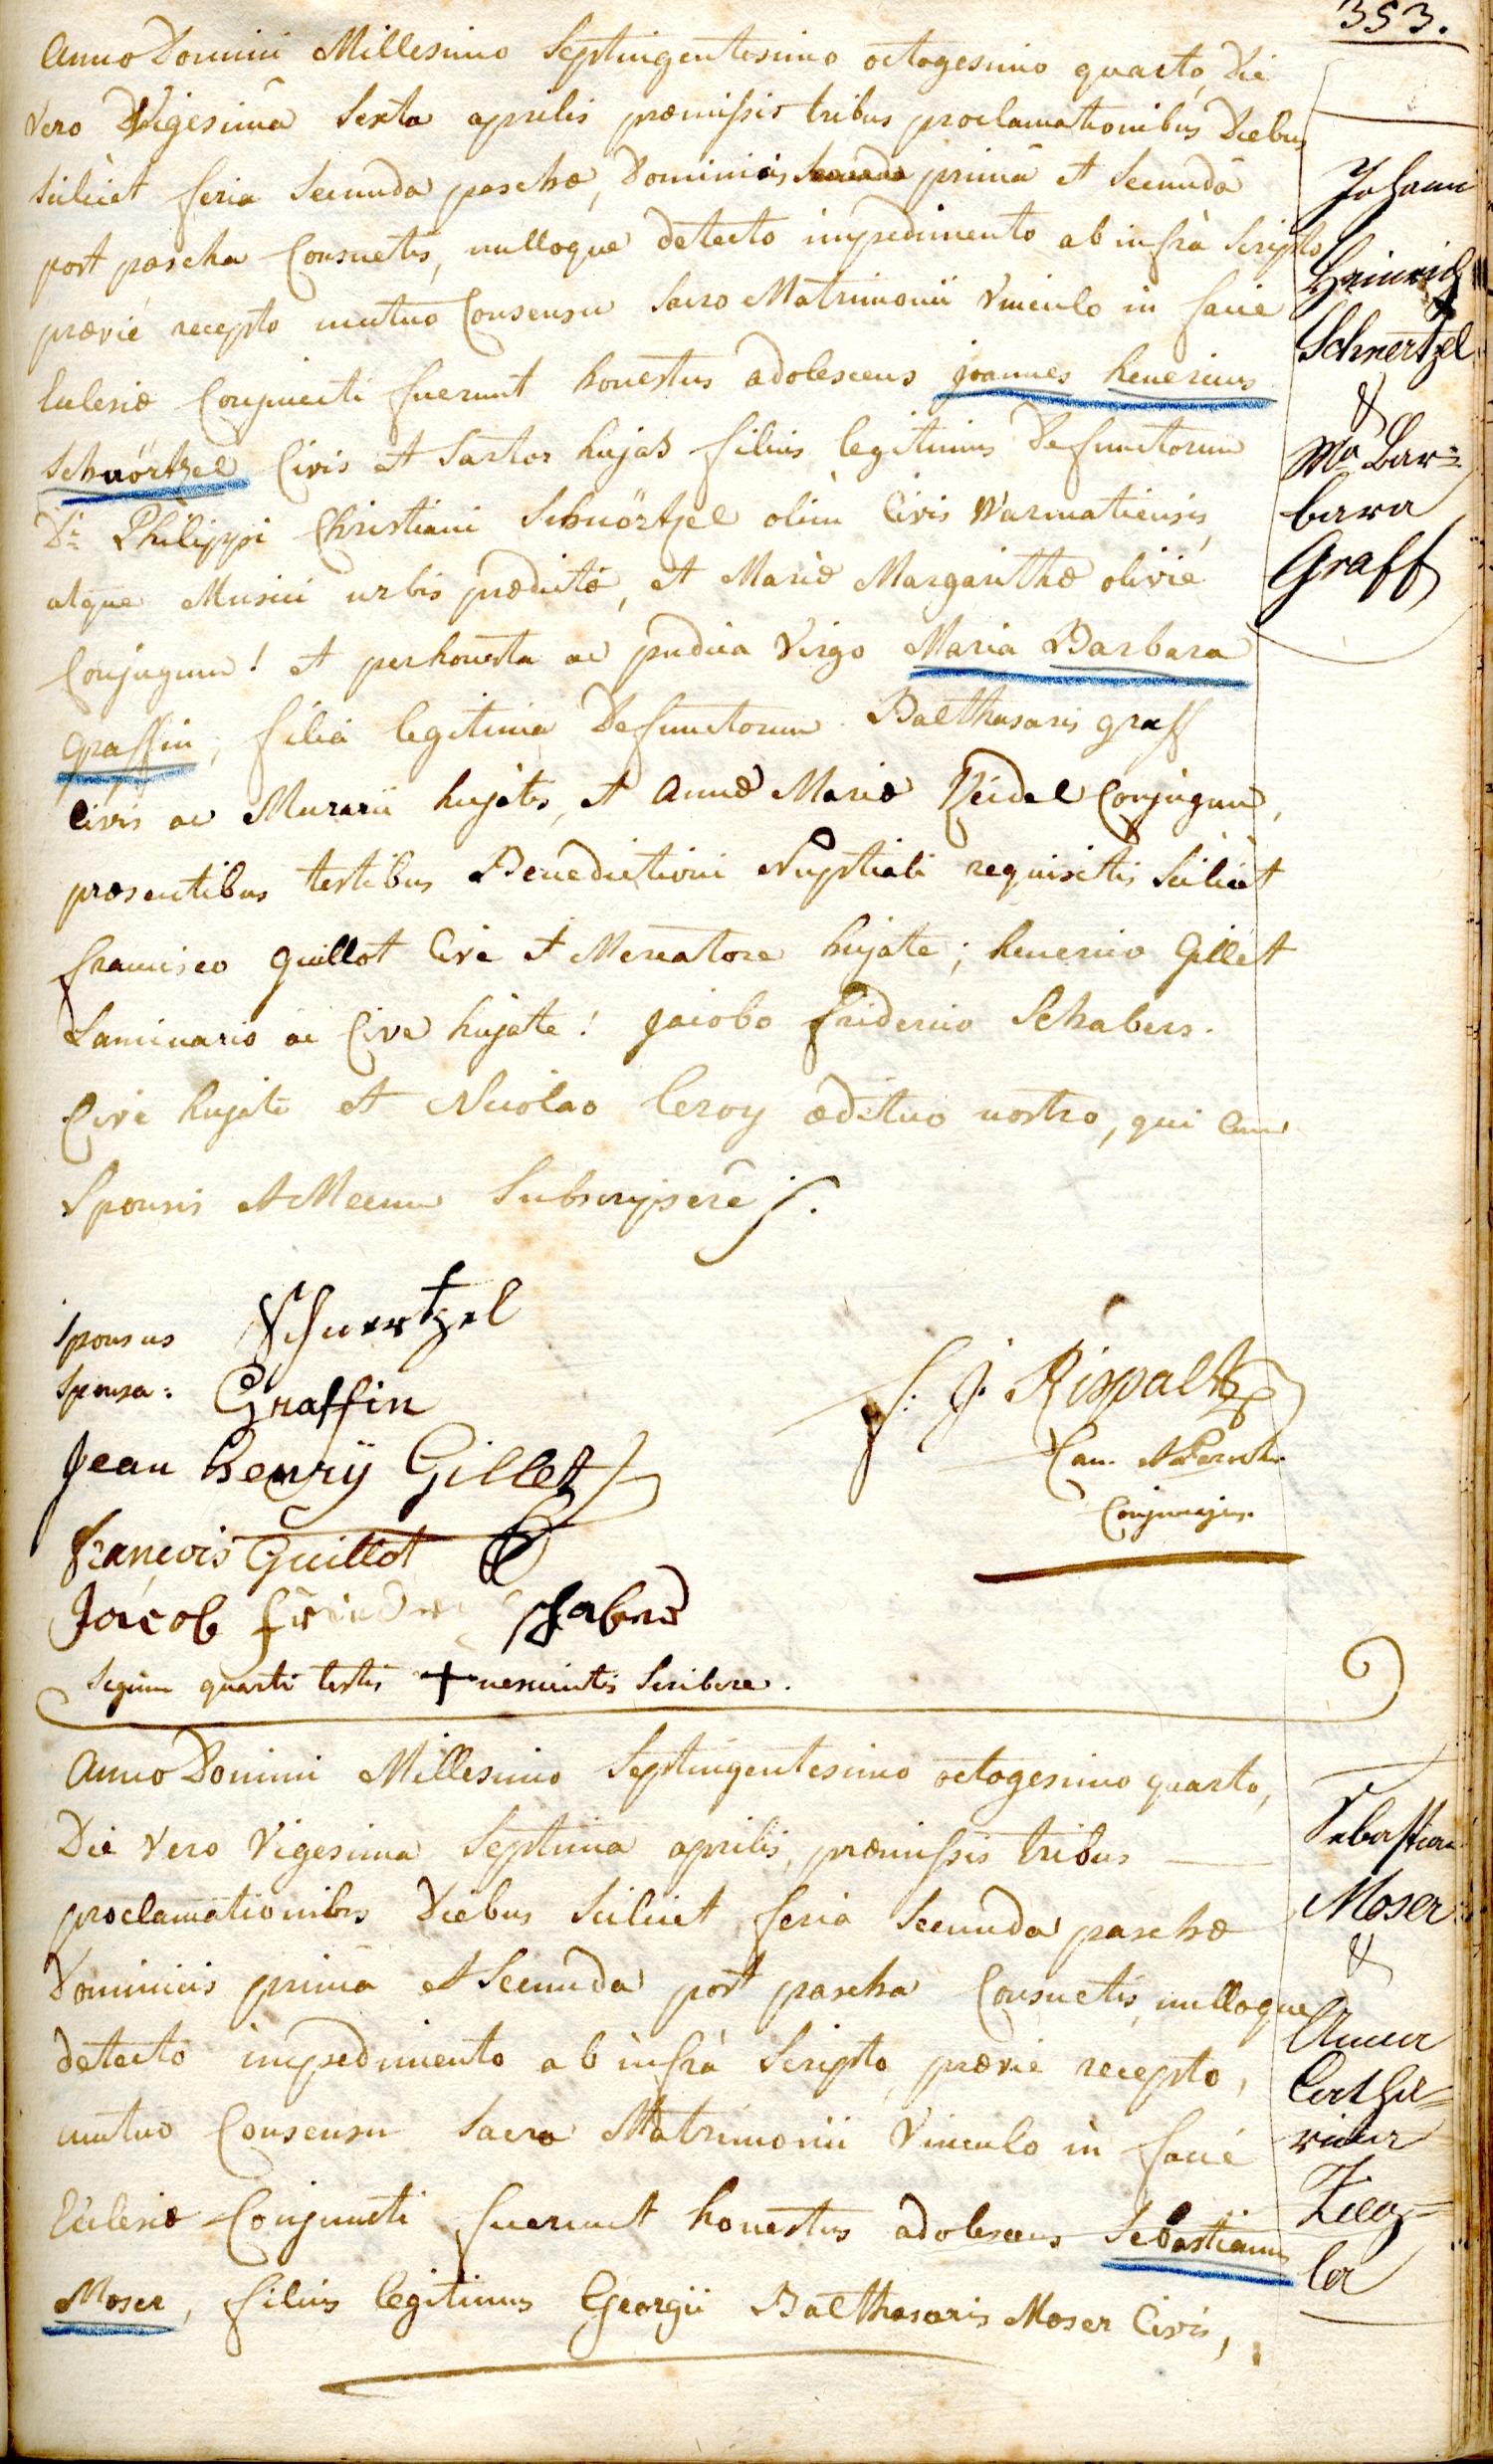 353.
Anno Domini Millesimo Septingentesimo octogesimo quarto, Die
Vero Vigesima Sexta aprilis præmissis tribus proclamationibus Diebus
scilicet feria Secunda paschæ, Dominicis prima et Secunda
post pascha Consuetis, nulloque detecto impedimento ab infrà Scripto
prævie recepto mutuo Consensu Sacro Matrimonii Vinculo in facie
Eclesiæ Conjuncti fuerunt honestus adolescens joannes henericus
Schnörtzel Civis et Sartor hujas filius legitimus Defunctorum
Di Philippi Christiani Schnörtzel olim Civis Warmatiensis,
atque Musici urbis prædictæ, et Mariæ Margarithæ olivie
Conjugum! et perhonesta ac pudica Virgo Maria Barbara
graffin, filia legitima Defunctorum Balthasaris graff
Civis ac Murarii hujatis, et Annæ Mariæ Neidel Conjugum,
præsentibus testibus Benedictioni Nuptiali requisitis Scilicet
francisco guillot Cive et Mercatore hujate; henerico Gillet
Laminario ac Cive hujate! jacobo friderico Schabers.
Cive hujate et Nicolao leroy ædituo nostro, qui Cum
Sponsis et Mecum Subscripsere
Sponsus Schnertzel
Sponsa: Graffin
Jean henrÿ Gillet
françois Guillot
Jacob schabers
Signum quarti testis + nescientis Scribere.
f. J. Rispaltz
Can.
Johann
Heinrich
Schnertzel
&
Ma Bar=
bara
Graff
Anno Domini Millesimo Septingentesimo octogesimo quarto,
Die Vero Vigesima Septima aprilis, præmissis tribus
proclamationibus Diebus Scilicet feria Secunda paschæ
Dominicis prima et Secunda post pascha Consuetis, nulloque
detecto impedimento ab infrà Scripto prævie recepto,
mutuo Consensu Sacro Matrimonii Vinculo in facie
Ecclesiæ Conjuncti fuerunt honestus adolescens Sebastianus
Moser, filius legitimus Georgii Balthasaris Moser Civis,
Sebastian
Moser
&
Anna
Catha=
rina
Zieg=
ler